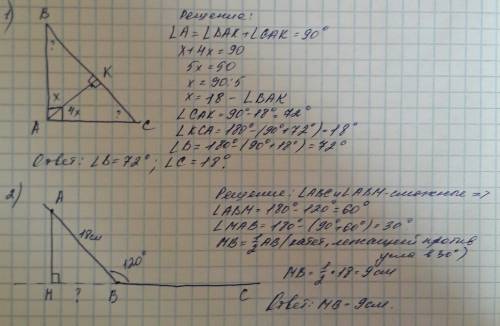 1)
B
?
K
x
4x
?
A
C
Решение:
∠A = ∠BAK + ∠CAK = 90°
x + 4x = 90
5x = 90
x = 90:5
x = 18 - ∠BAK
∠CAK = 90° - 18° = 72°
∠KCA = 180° - (90° + 72°) = 18°
∠B = 180° - (90° + 18°) = 72°
Ответ: ∠B = 72°; ∠C = 18°.
2)
A
18см
120°
M
?
B
C
Решение: ∠ABC и ∠ABM - смежные =>
∠ABM = 180° - 120° = 60°
∠MAB = 180° - (90° + 60°) = 30°
MB = 1/2 AB (катет, лежащий против
угла в 30°)
MB = 1/2 · 18 = 9см
Ответ: MB = 9см.